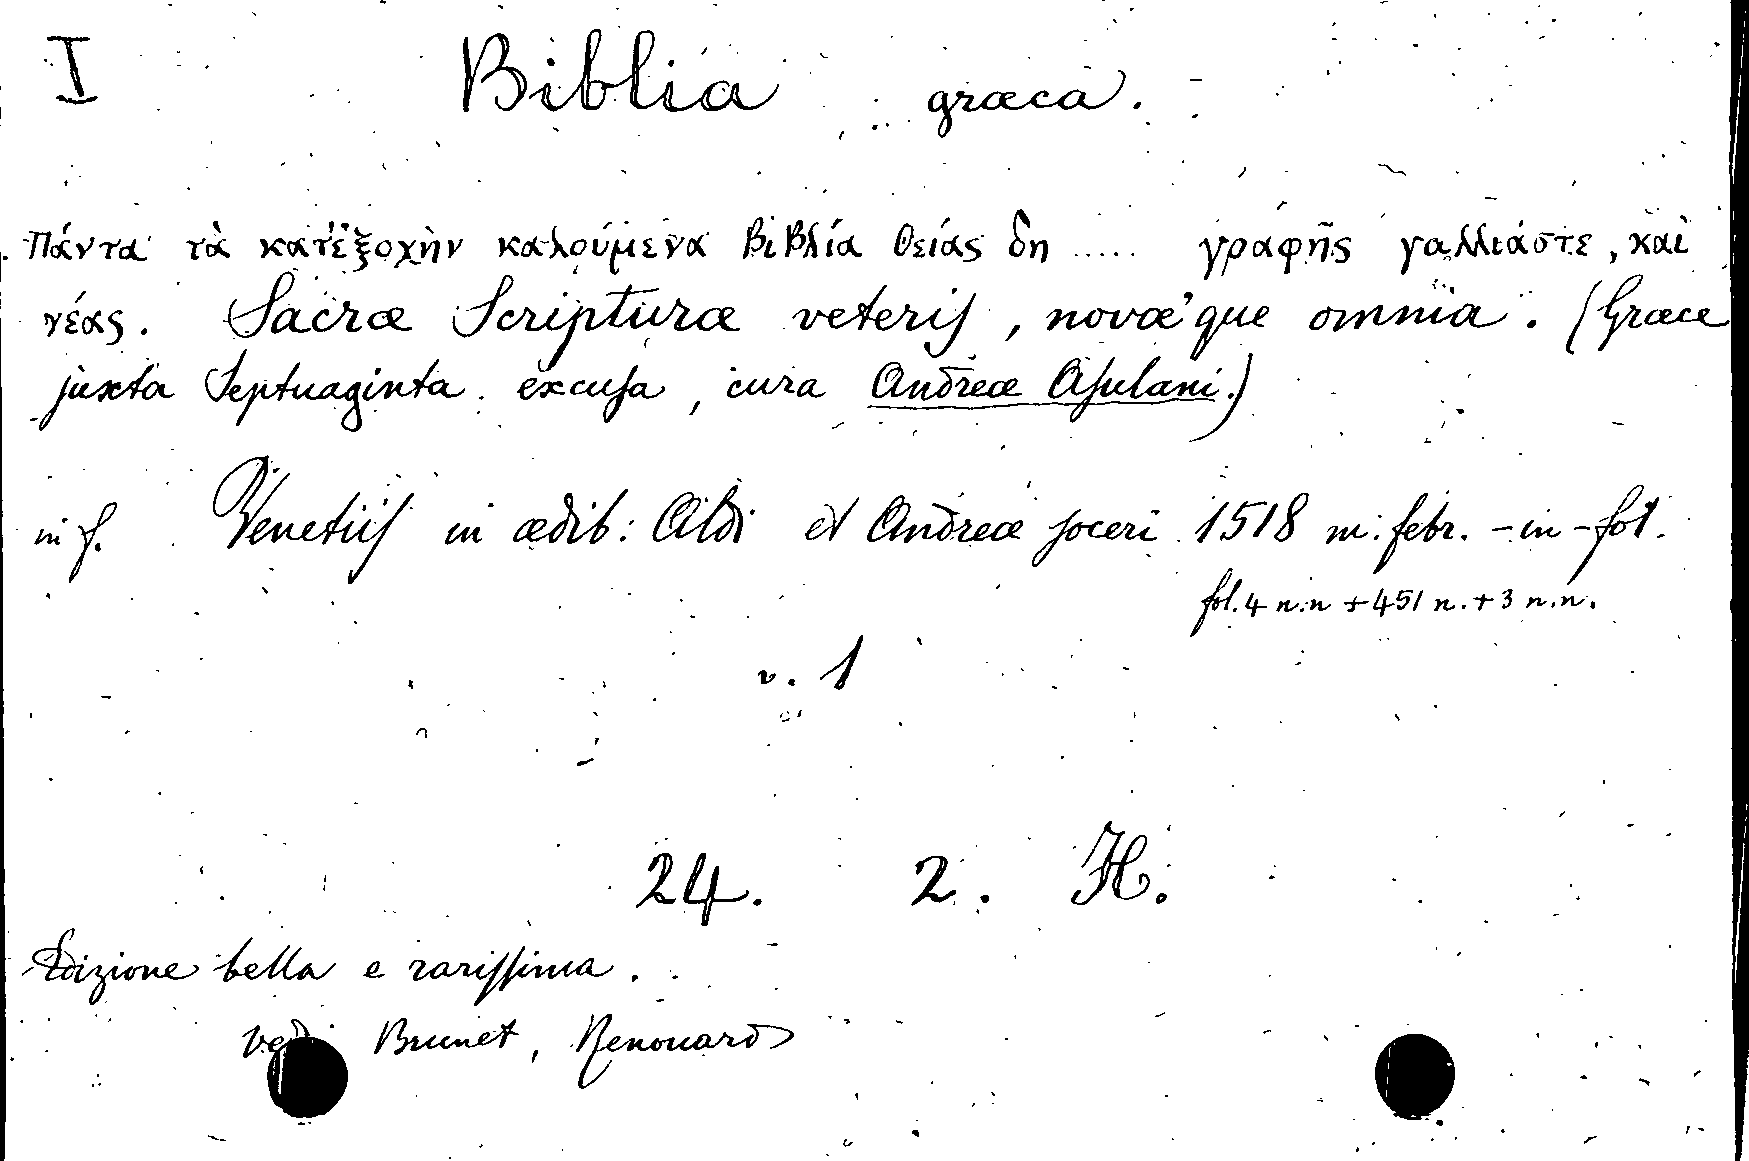 I Biblia græca.
Πάντα τὰ κατ'ἐξοχὴν καλούμενα Βιβλία θείας δη ..... γραφῆς γαλλιάστε, καὶ
νέας. Sacræ Scripturæ veteris, novæ'que omnia. (Græce
juxta Septuaginta excusa, cura Andreæ Asulani.)
in f. Venetiis in ædib: Aldi et Andreæ soceri 1518 m. febr. - in - fol.
fol. 4 n.n + 451 n. + 3 n.n.
v. 1
24. 2. H.
Edizione bella e rarissima.
vedi Brunet, Renouard